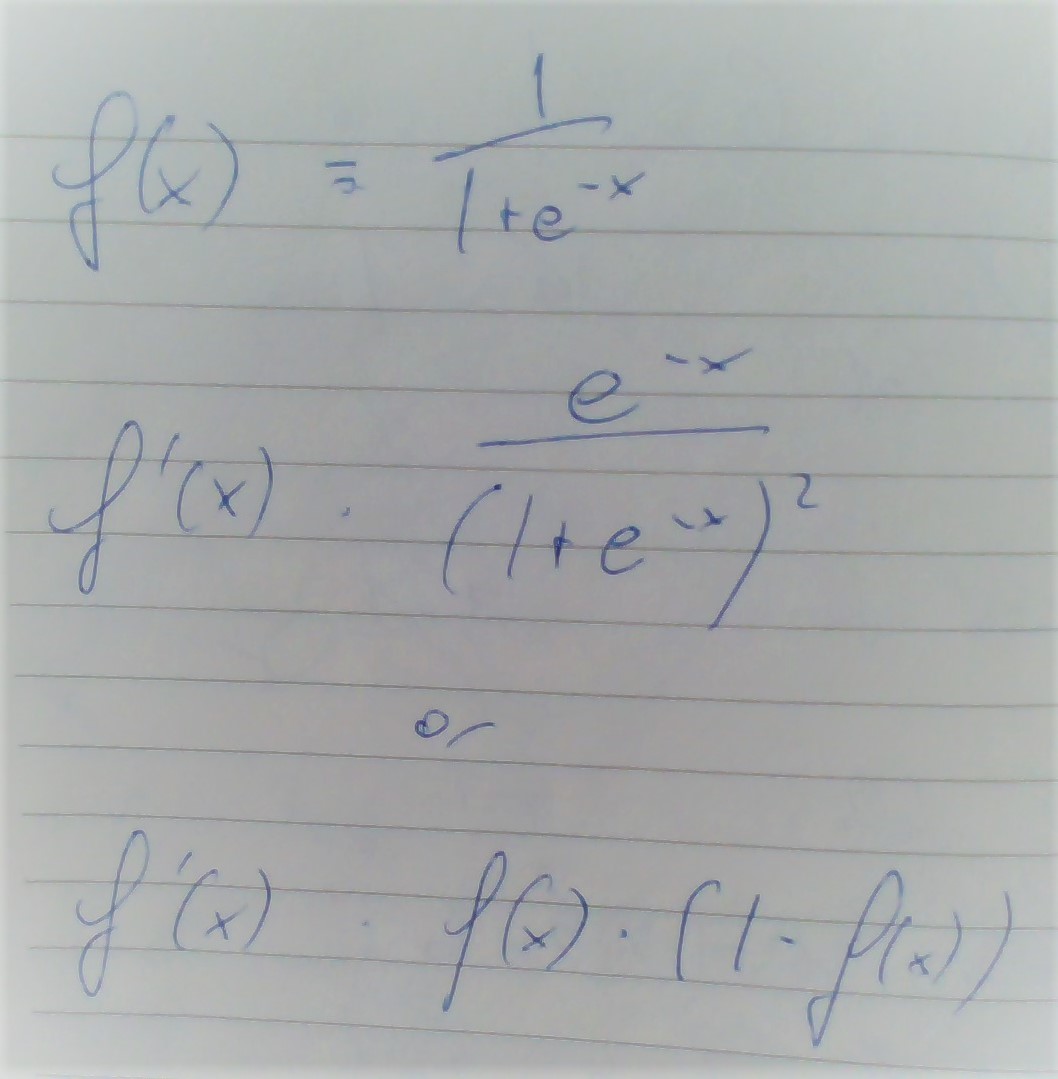 f(x) = 1/(1+e^-x)
f'(x) · e^-x/(1+e^-x)^2
or
f'(x) · f(x) · (1 - f(x))